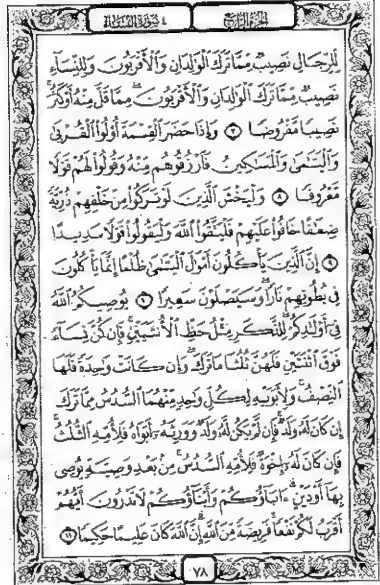 الجزء الرابع
٤ سورة النساء
لِّلرِّجَالِ نَصِيبٌ مِّمَّا تَرَكَ الْوَٰلِدَانِ وَالْأَقْرَبُونَ وَلِلنِّسَاءِ
نَصِيبٌ مِّمَّا تَرَكَ الْوَٰلِدَانِ وَالْأَقْرَبُونَ مِمَّا قَلَّ مِنْهُ أَوْ كَثُرَ
نَصِيبًا مَّفْرُوضًا ٧ وَإِذَا حَضَرَ الْقِسْمَةَ أُولُوا الْقُرْبَىٰ
وَالْيَتَٰمَىٰ وَالْمَسَٰكِينُ فَارْزُقُوهُم مِّنْهُ وَقُولُوا لَهُمْ قَوْلًا
مَّعْرُوفًا ٨ وَلْيَخْشَ الَّذِينَ لَوْ تَرَكُوا مِنْ خَلْفِهِمْ ذُرِّيَّةً
ضِعَٰفًا خَافُوا عَلَيْهِمْ فَلْيَتَّقُوا اللَّهَ وَلْيَقُولُوا قَوْلًا سَدِيدًا
٩ إِنَّ الَّذِينَ يَأْكُلُونَ أَمْوَٰلَ الْيَتَٰمَىٰ ظُلْمًا إِنَّمَا يَأْكُلُونَ
فِي بُطُونِهِمْ نَارًا وَسَيَصْلَوْنَ سَعِيرًا ١٠ يُوصِيكُمُ اللَّهُ
فِي أَوْلَٰدِكُمْ لِلذَّكَرِ مِثْلُ حَظِّ الْأُنثَيَيْنِ فَإِن كُنَّ نِسَاءً
فَوْقَ اثْنَتَيْنِ فَلَهُنَّ ثُلُثَا مَا تَرَكَ وَإِن كَانَتْ وَٰحِدَةً فَلَهَا
النِّصْفُ وَلِأَبَوَيْهِ لِكُلِّ وَٰحِدٍ مِّنْهُمَا السُّدُسُ مِمَّا تَرَكَ
إِن كَانَ لَهُ وَلَدٌ فَإِن لَّمْ يَكُن لَّهُ وَلَدٌ وَوَرِثَهُ أَبَوَاهُ فَلِأُمِّهِ الثُّلُثُ
فَإِن كَانَ لَهُ إِخْوَةٌ فَلِأُمِّهِ السُّدُسُ مِنْ بَعْدِ وَصِيَّةٍ يُوصِي
بِهَا أَوْ دَيْنٍ ءَابَاؤُكُمْ وَأَبْنَاؤُكُمْ لَا تَدْرُونَ أَيُّهُمْ
أَقْرَبُ لَكُمْ نَفْعًا فَرِيضَةً مِّنَ اللَّهِ إِنَّ اللَّهَ كَانَ عَلِيمًا حَكِيمًا ١١
٧٨